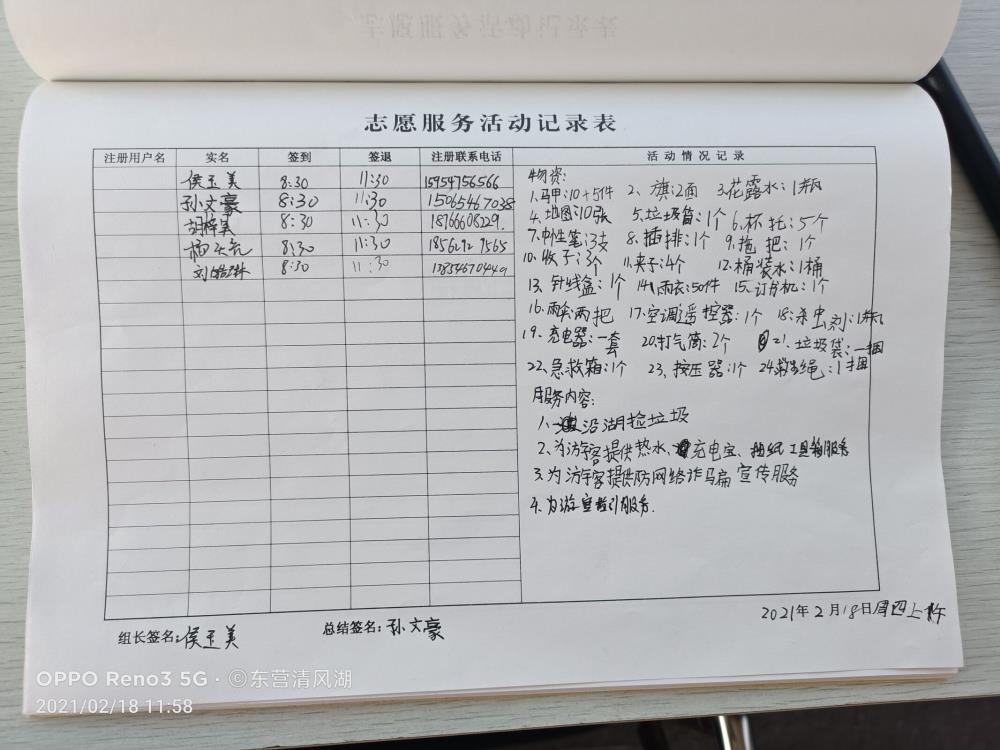 志愿服务活动记录表
注册用户名 实名 签到 签退 注册联系电话 活动情况记录
侯玉美 8:30 11:30 15954756566
孙文豪 8:30 11:30 15065467038
胡梓昊 8:30 11:30 18766608229
8:30 11:30 1856292 7565
刘 8:30 11:30
物资:
1.马甲:10+5件 2、旗:2面 3.花露水:1瓶
4.地图:10张 5.垃圾筒:1个 6.杯托:5个
7.中性笔:3支 8.插排:1个 9.拖把:1个
10.收子:3个 11.夹子:4个 12.桶装水:1桶
13.针线盒:1个 14.雨衣:50件 15.订书机:1个
16.雨伞:两把 17.空调遥控器:1个 18.杀虫剂:1瓶
19.充电器:一套 20.打气筒:2个 21.垃圾袋:一捆
22.急救箱:1个 23、按压器:1个 24.救生绳:1捆
服务内容:
1、沿湖捡垃圾
2、为游客提供热水、充电宝、抽纸工具箱服务
3.为游客提供防网络诈骗宣传服务
4.为游客指引服务.
2021年2月18日周四上午
组长签名:侯玉美 总结签名:孙文豪
OPPO Reno3 5G · ©东营清风湖
2021/02/18 11:58